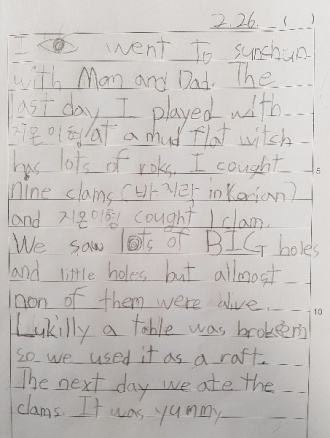 2.26. ( )
I went to sunchun
with Mom and Dad. The
last day I played with
지온이형 at a mud flat witch
has lots of roks. I cought
nine clams (바지락 in Korian)
and 지온이형 cought 1 clam.
We saw lots of BIG holes
and little holes but allmost
non of them were alive.
Lukilly a table was brokem
so we used it as a raft.
The next day we ate the
clams. It was yummy
5
10